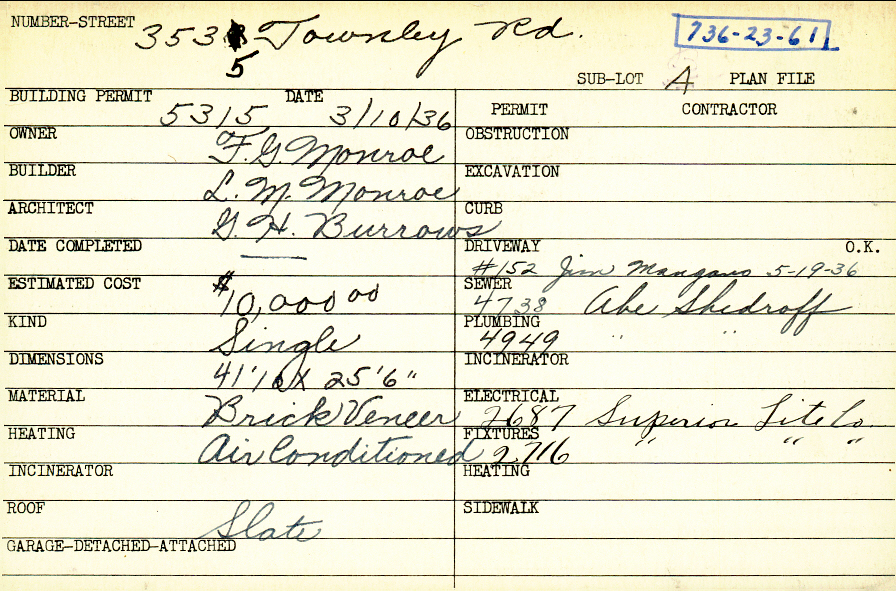 NUMBER-STREET 3535 Townley Rd. 736-23-61
SUB-LOT A PLAN FILE
BUILDING PERMIT 5315 DATE 3/10/36
PERMIT CONTRACTOR
OWNER F. G. Monroe
OBSTRUCTION
BUILDER L. M. Monroe
EXCAVATION
ARCHITECT G. H. Burrows
CURB
DATE COMPLETED —
DRIVEWAY #152 Jim Mangano 5-19-36 O.K.
ESTIMATED COST $10,000 00
SEWER 4738 Abe Shedroff
KIND Single
PLUMBING 4949 " "
DIMENSIONS 41' X 25'6"
INCINERATOR
MATERIAL Brick Veneer
ELECTRICAL 2687 Superior Lite Co.
HEATING Air Conditioned
FIXTURES 2716 " " "
INCINERATOR
HEATING
ROOF Slate
SIDEWALK
GARAGE-DETACHED-ATTACHED